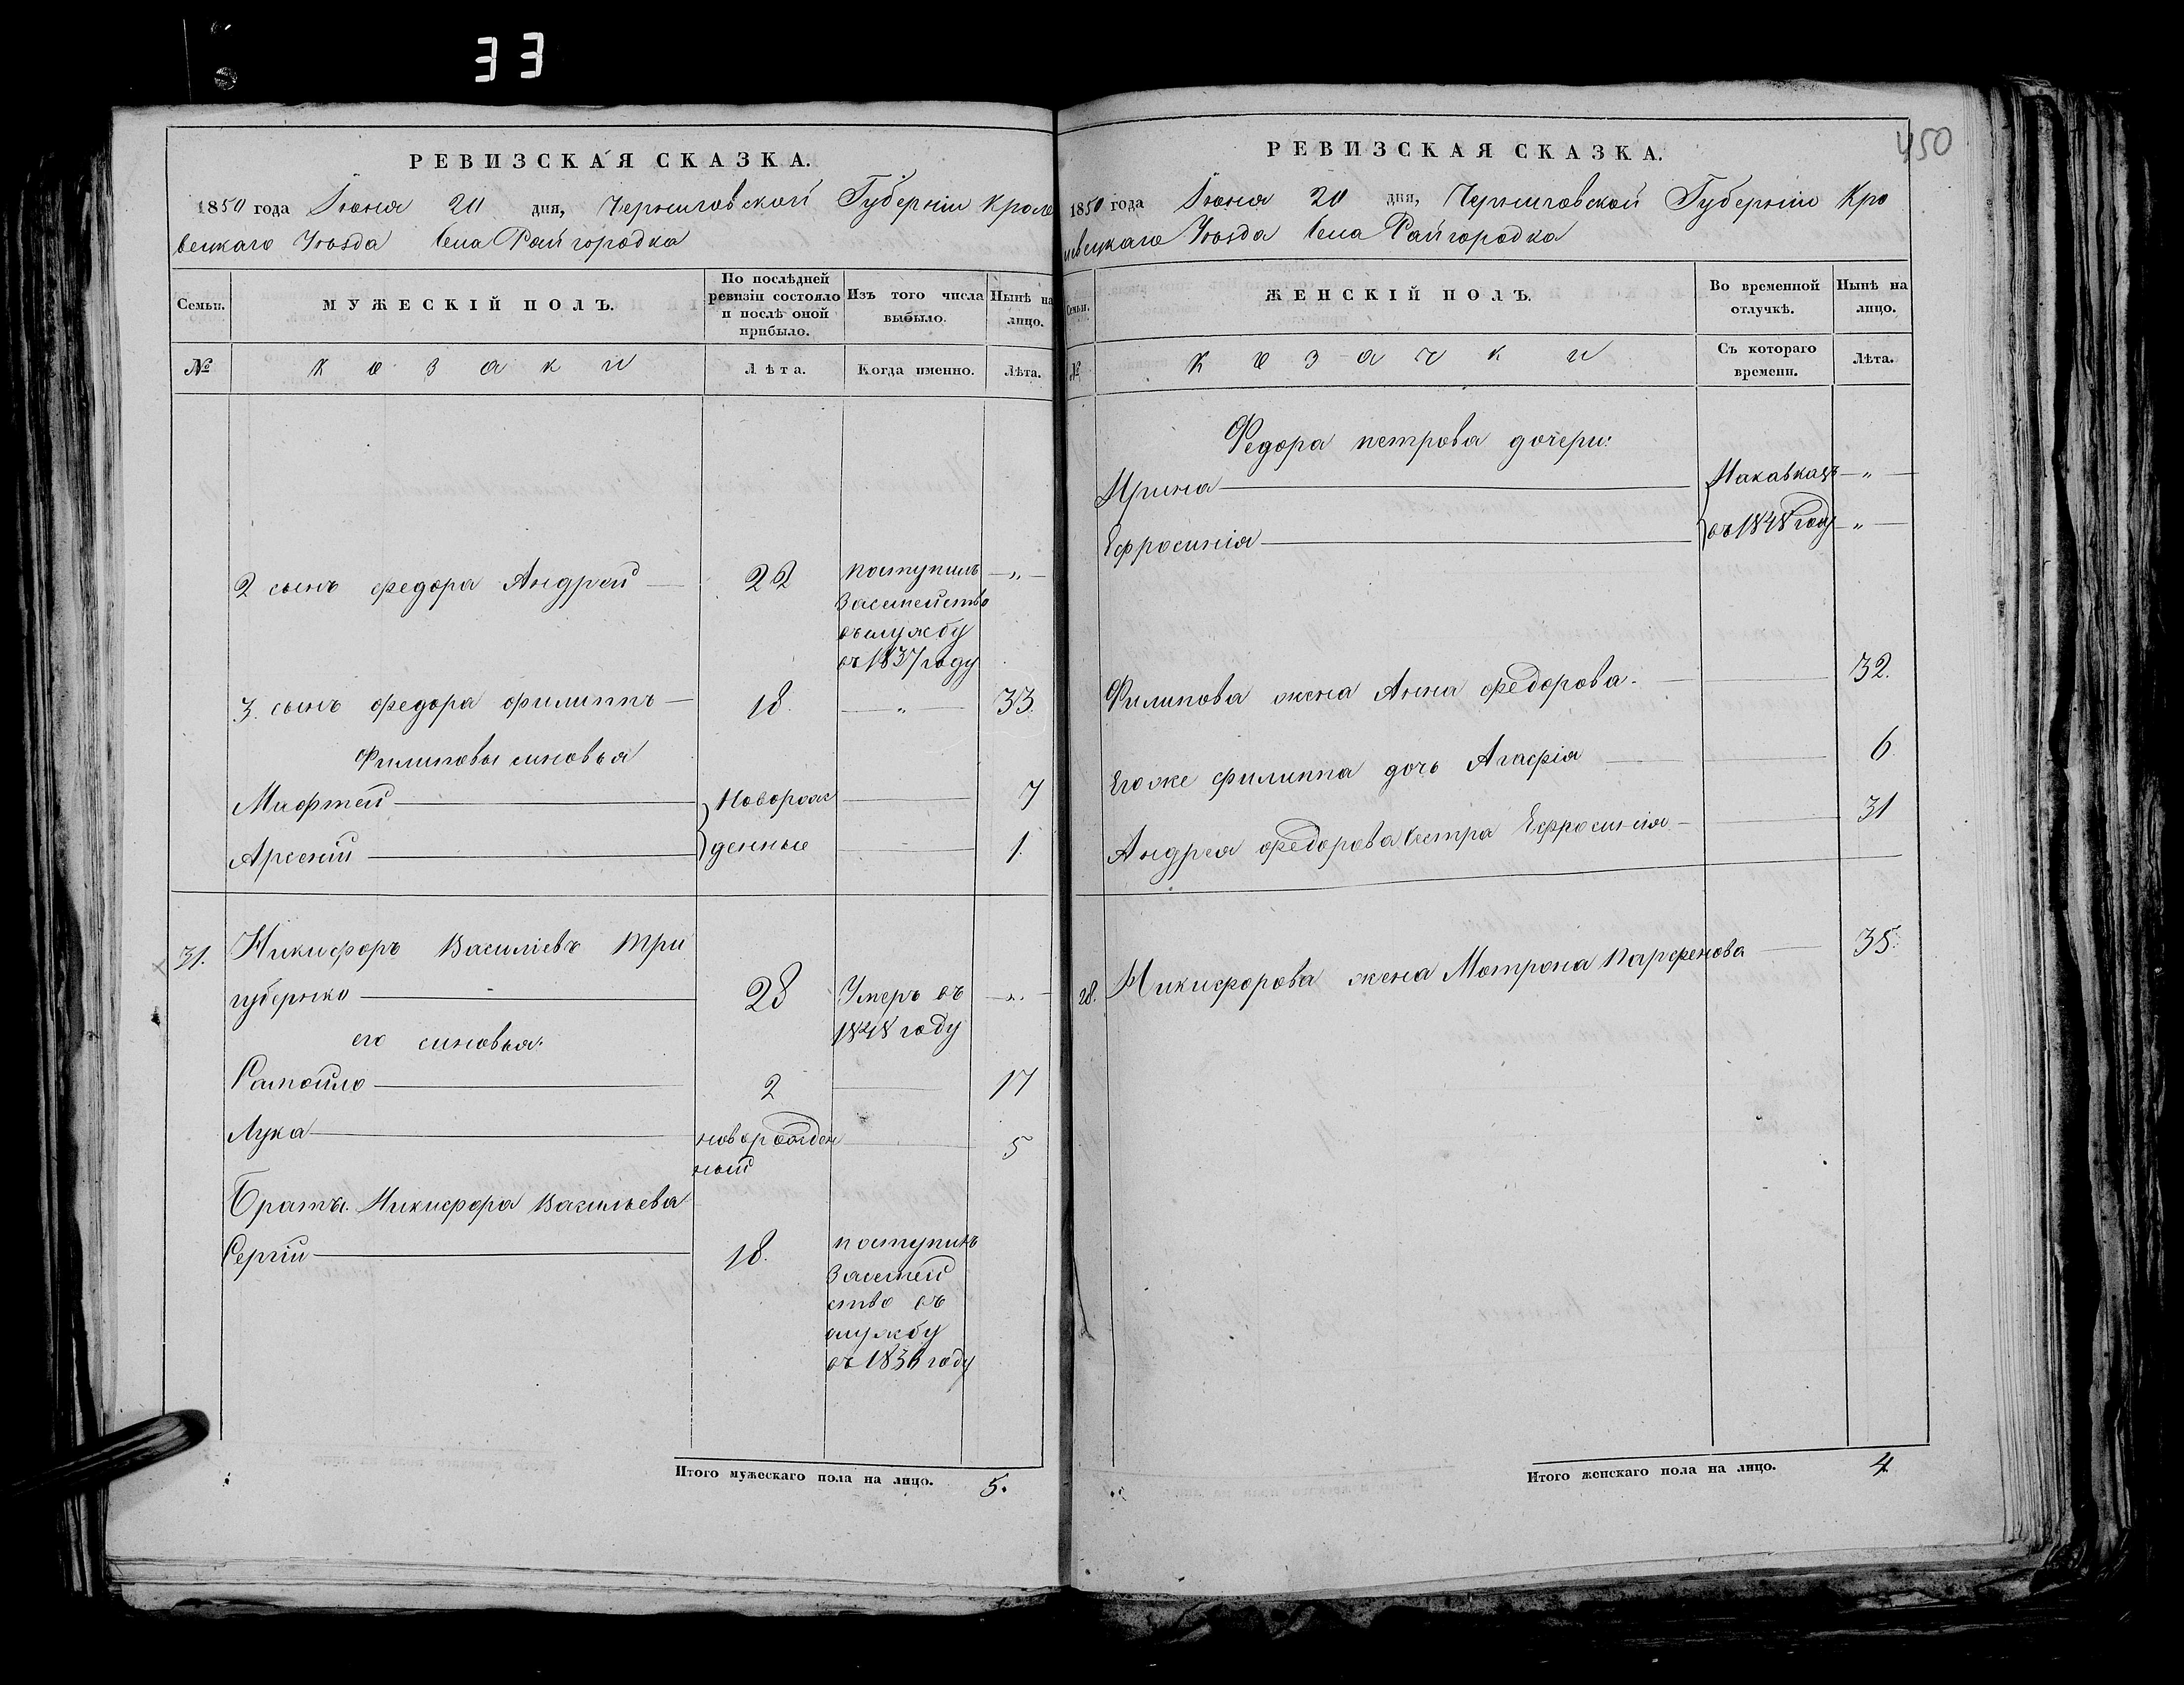 33
РЕВИЗСКАЯ СКАЗКА.
1850 года Июня 20 дня, Черниговской Губерніи Кроле
вецкаго Уѣзда Села Райгородка
Семьи.
МУЖЕСКІЙ ПОЛЪ.
По послѣдней ревизіи состояло и послѣ оной прибыло.
Изъ того числа выбыло.
Нынѣ на лицо.
№
Козаки
Лѣта.
Когда именно.
Лѣта.
2 сынъ федора Андрей — 22 поступилъ — „ —
засемейство
въ службу
въ 1837 году
3. сынъ федора филиппъ — 18. — „ — 33.
Филиповы синовья
Мафтей — Новорож — 7
Арсеній — денные — 1.
31. Никифоръ Василіевъ Три
губенко — 28 Умеръ въ — „ —
1848 году
его синовья:
Самойло — 2 — 17
Лука — новорожден — 5
ный
Братъ Никифора Васильева
Сергій — 18. поступилъ
Засемей
ство въ
службу
въ 1836 году
Итого мужескаго пола на лицо. 5.
450
РЕВИЗСКАЯ СКАЗКА.
1850 года Июня 20 дня, Черниговской Губерніи Кро
левецкаго Уѣзда Села Райгородка
Семьи.
ЖЕНСКІЙ ПОЛЪ.
Во временной отлучкѣ.
Нынѣ на лицо.
№
Козачки
Съ котораго времени.
Лѣта.
Федора петрова дочери:
Ирина — Накавказъ — „ —
Ефросинія — въ 1848 году — „ —
Филипова жена Анна федорова — 32.
Его же филиппа дочь Агафія — 6
Андрея федорова Сестра Ефросинія — 31
28. Никифорова жена Мотрона парфенова — 35.
Итого женскаго пола на лицо. 4